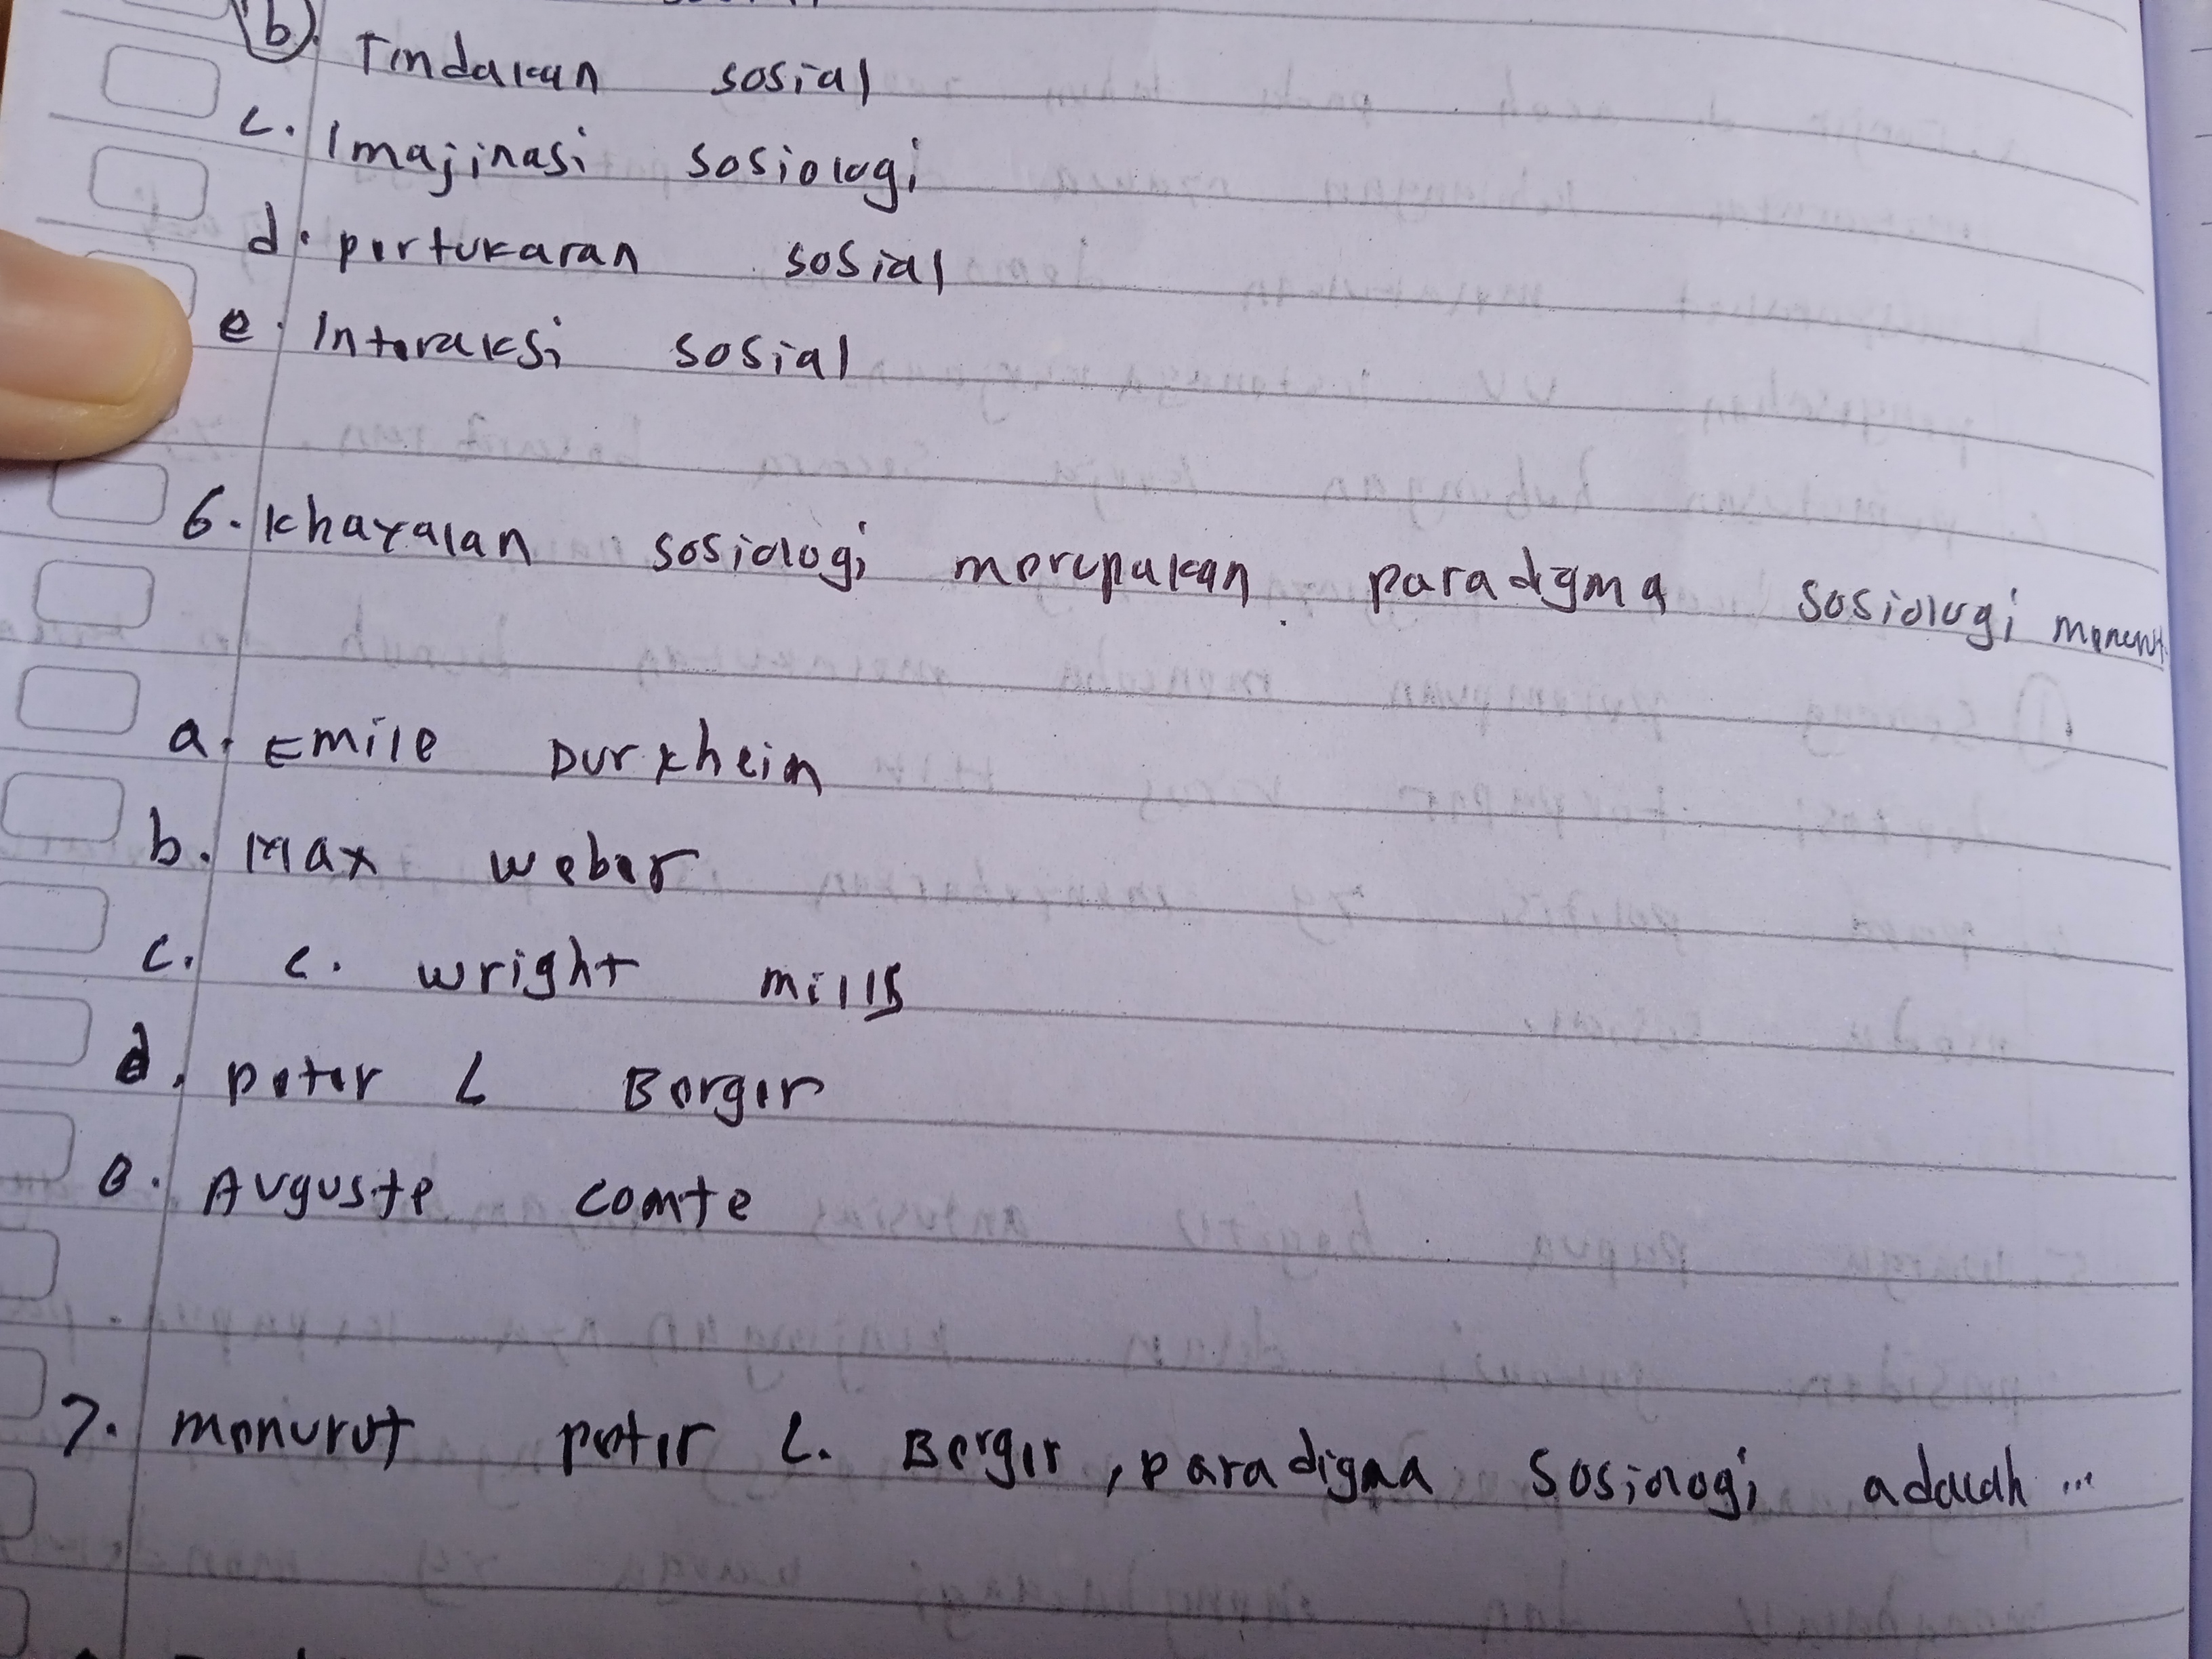 b. Tindakan sosial
c. Imajinasi sosiologi
d. pertukaran sosial
e. Interaksi sosial
6. khayalan sosiologi merupakan paradigma sosiologi menurut
a. Emile Durkheim
b. Max weber
c. c. wright mills
d. peter L Berger
e. Auguste comte
7. menurut peter L. Berger, paradigma sosiologi adalah ...